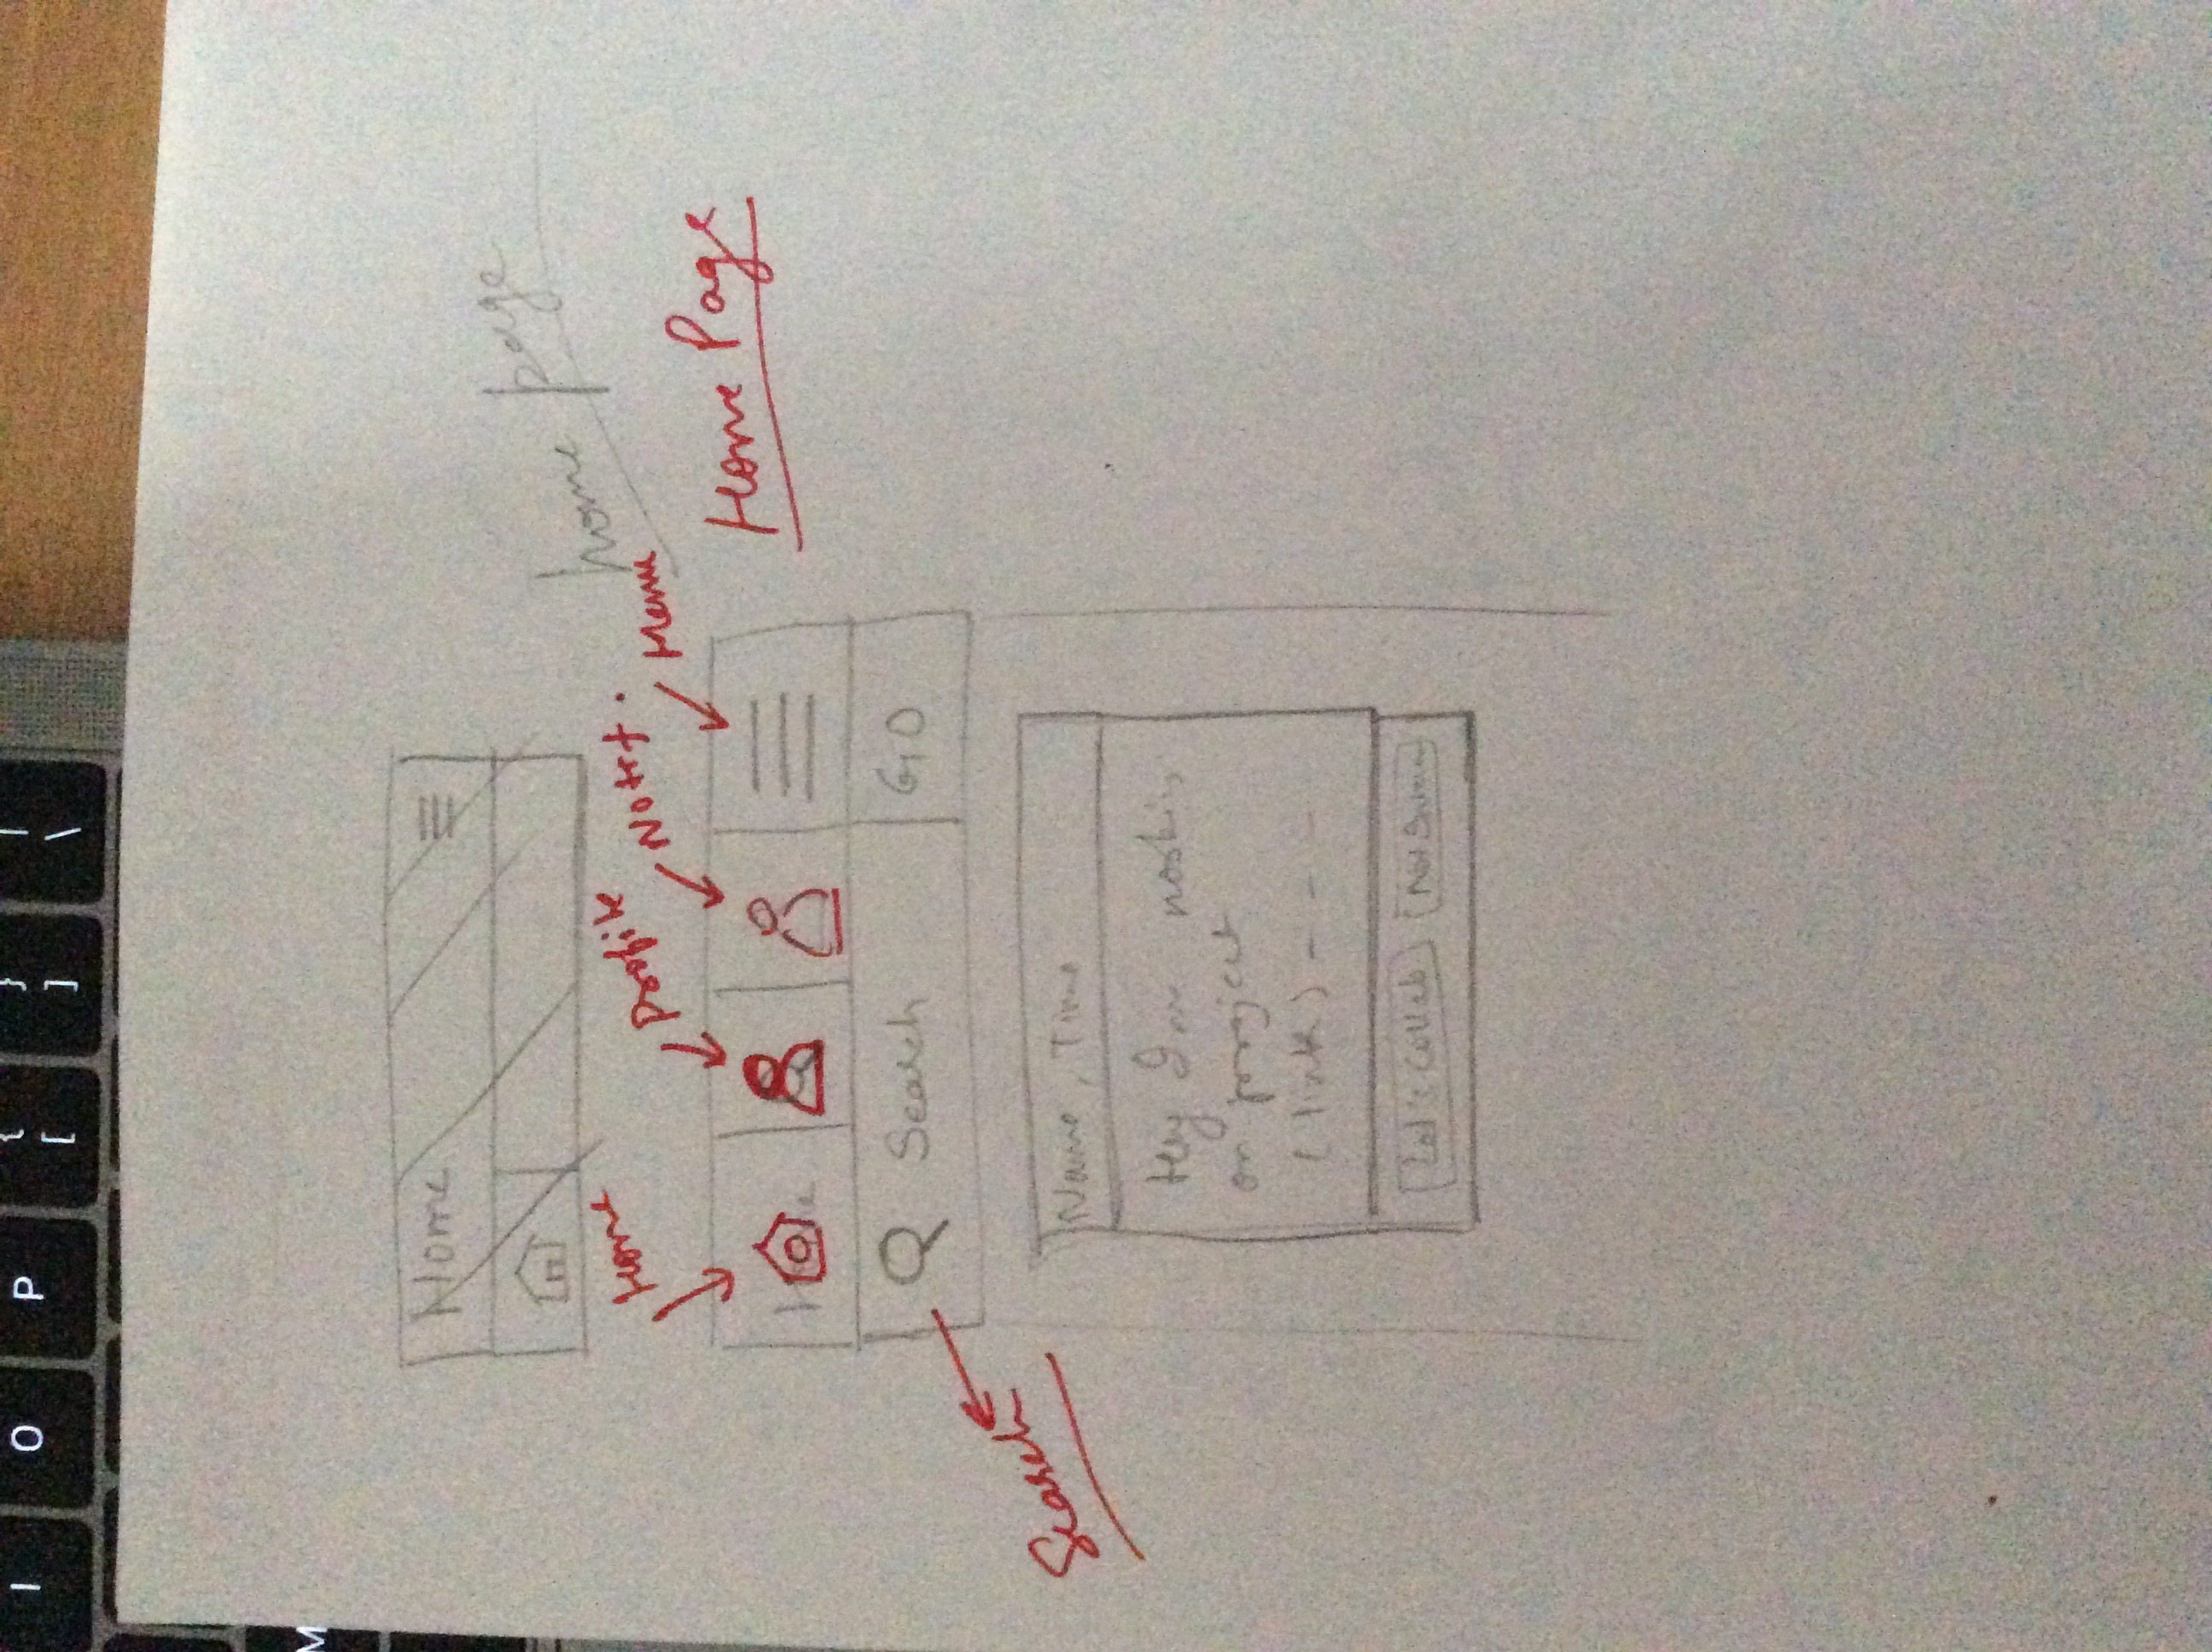 Home
home page
Home Page
Home
Profile
Notf.
Menu
Search
GO
Search
Name, Time
Hey I'm working
on project
(link) - - -
Let's Collab
Not Sure
{
[
}
]
|
\
I
O
P
M